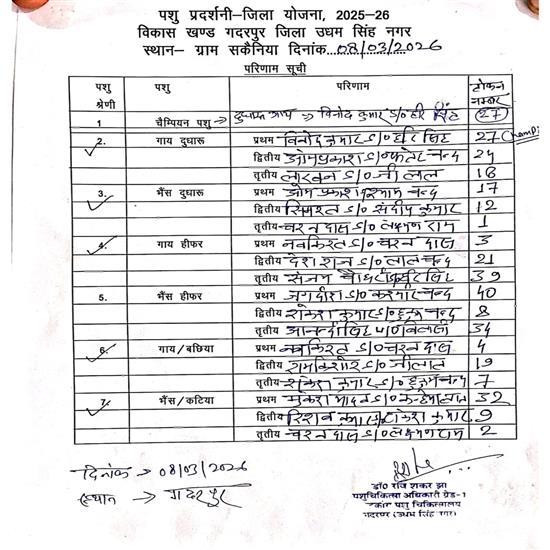 पशु प्रदर्शनी–जिला योजना, 2025–26
विकास खण्ड गदरपुर जिला उधम सिंह नगर
स्थान– ग्राम सकैनिया दिनांक 08/03/2026
परिणाम सूची
पशु श्रेणी पशु परिणाम टोकन नम्बर
1 चैम्पियन पशु → दुधारू गाय → विनोद कुमार S/O हरि सिंह (27)
2. गाय दुधारू प्रथम विनोद कुमार S/O हरि सिंह 27
द्वितीय ओमप्रकाश S/O चन्द 24
तृतीय S/O 16
3. भैंस दुधारू प्रथम ओम प्रकाश चन्द 17
द्वितीय सिमरत S/O संदीप कुमार 12
तृतीय चरन दास S/O लक्ष्मण राम 1
4. गाय हीफर प्रथम नवकिरत S/O चरन दास 3
द्वितीय देश राज S/O लाल चन्द 21
तृतीय संजय सिंह 39
5. भैंस हीफर प्रथम जगदीश S/O करमीर चन्द 40
द्वितीय राकेश कुमार S/O हुकम चन्द 8
तृतीय 34
6. गाय/बछिया प्रथम नवकिरत S/O चरन दास 4
द्वितीय रामकिशोर S/O 19
तृतीय राकेश कुमार S/O हुकम चन्द 7
7. भैंस/कटिया प्रथम S/O 32
द्वितीय रिशव कुमार S/O राकेश कुमार 9
तृतीय चरन दास S/O लक्ष्मण राम 2
दिनांक → 08/03/2026
स्थान → गदरपुर
डा० रवि शंकर झा
पशुचिकित्सा अधिकारी ग्रेड-1
पशु चिकित्सालय
गदरपुर (उधम सिंह नगर)